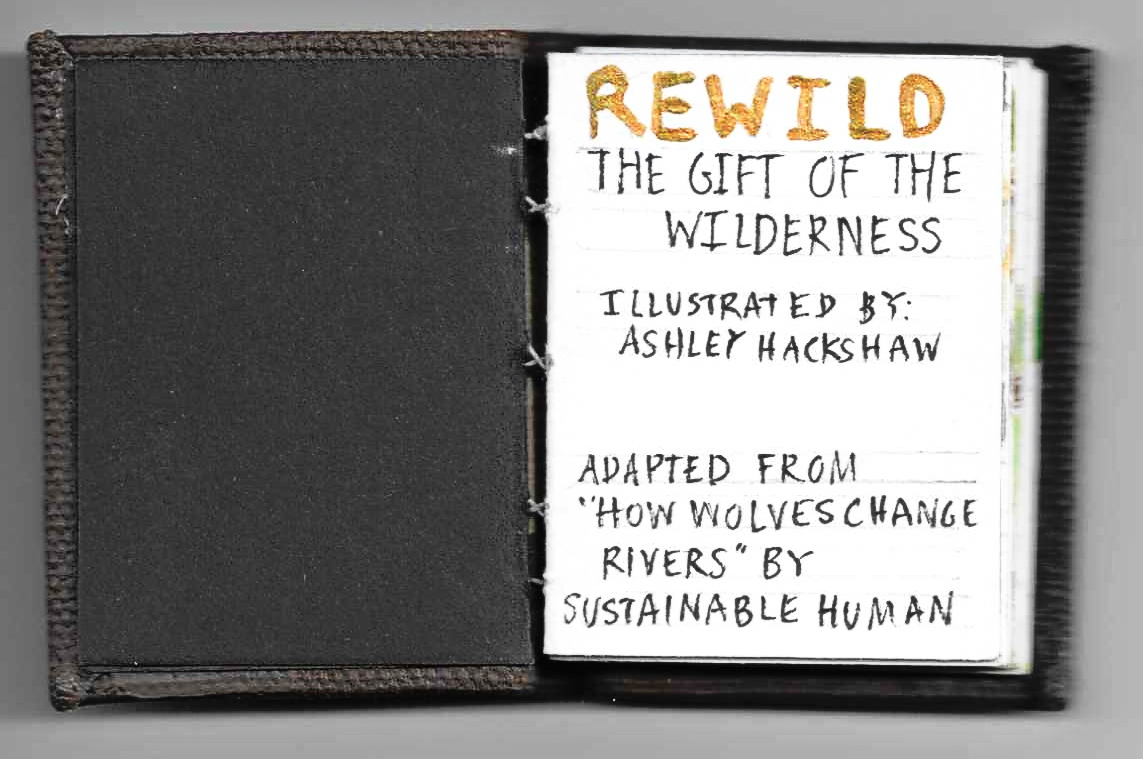 REWILD
THE GIFT OF THE
WILDERNESS
ILLUSTRATED BY:
ASHLEY HACKSHAW
ADAPTED FROM
"HOW WOLVES CHANGE
RIVERS" BY
SUSTAINABLE HUMAN